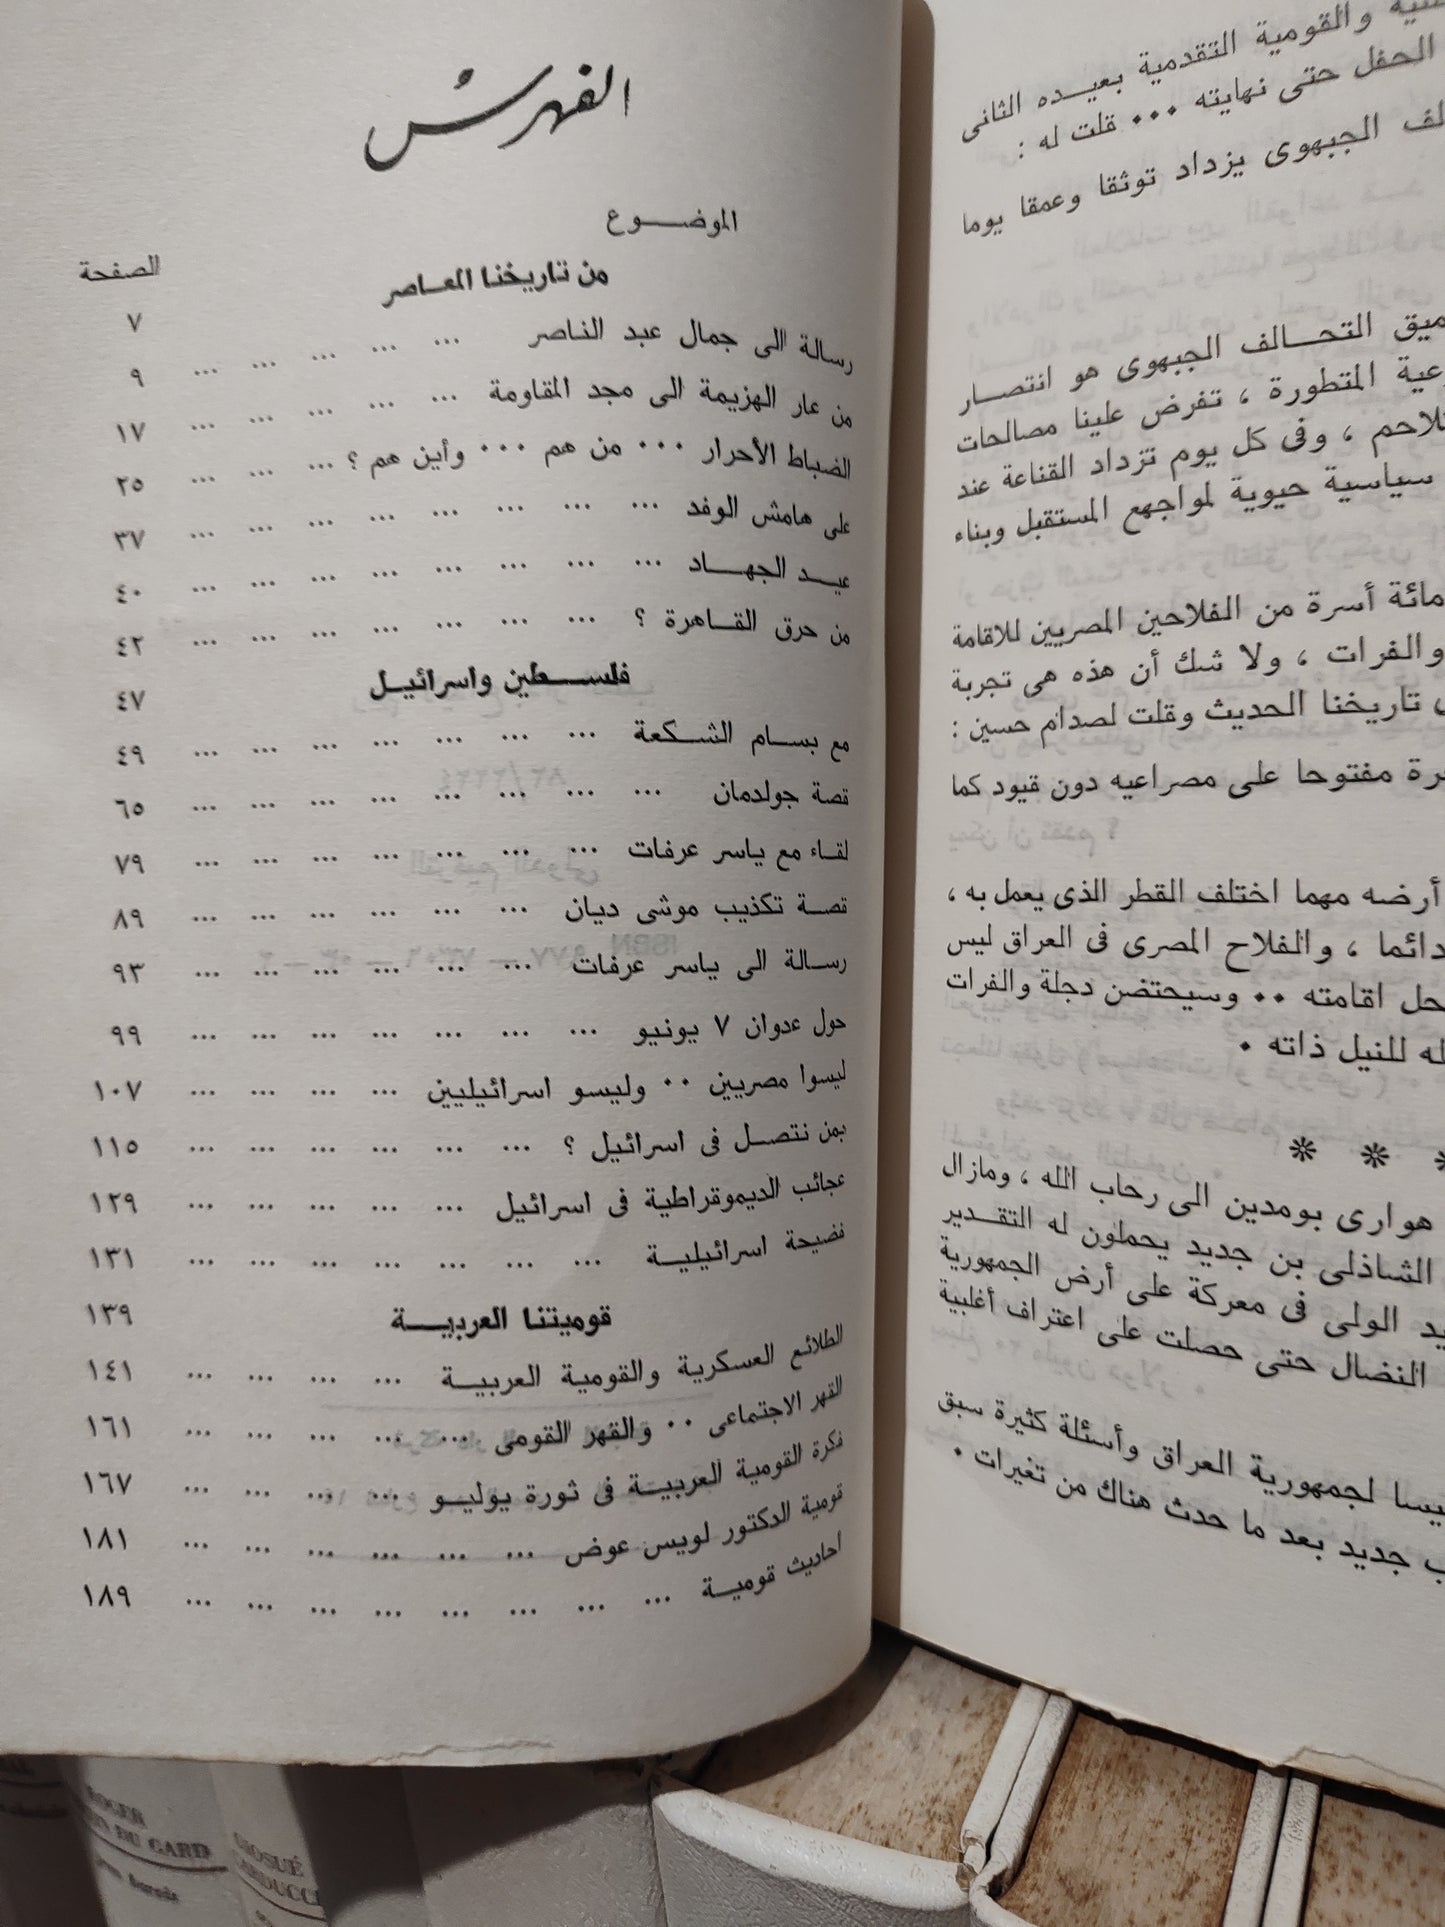 الفهرس
الموضـــوع
الصفحة
من تاريخنا المعـاصر
٧
رسالة الى جمال عبد الناصر ... ... ... ... ... ٩
من عار الهزيمة الى مجد المقاومة ... ... ... ... ... ١٧
الضباط الأحرار ... من هم ... وأين هم ؟ ... ... ... ٢٥
على هامش الوفد ... ... ... ... ... ... ... ... ٣٧
عيـد الجهـاد ... ... ... ... ... ... ... ... ٤٠
من حرق القـاهرة ؟ ... ... ... ... ... ... ... ٤٢
فلسـطين واسرائيـل
٤٧
مع بسـام الشـكعة ... ... ... ... ... ... ... ٤٩
قصة جولدمان ... ... ... ... ... ... ... ... ٦٥
لقـاء مع ياسر عرفات ... ... ... ... ... ... ... ٧٩
قصـة تكذيب موشى ديان ... ... ... ... ... ... ٨٩
رسـالة الى ياسر عرفات ... ... ... ... ... ... ٩٣
حول عدوان ٧ يونيو ... ... ... ... ... ... ... ٩٩
ليسوا مصريين .. وليسو اسرائيليين ... ... ... ... ١٠٧
بمن نتصـل فى اسرائيل ؟ ... ... ... ... ... ... ١١٥
عجائب الديموقراطية فى اسرائيل ... ... ... ... ... ١٢٩
فضيحة اسرائيليـة ... ... ... ... ... ... ... ١٣١
قوميتنا العربيــة
١٣٩
الطلائع العسكرية والقومية العربيـة ... ... ... ... ١٤١
القهر الاجتماعى .. والقهر القومى ... ... ... ... ... ١٦١
فكرة القومية العربيـة فى ثورة يوليـو ... ... ... ... ١٦٧
قومية الدكتور لويس عوض ... ... ... ... ... ... ١٨١
احاديث قوميـة ... ... ... ... ... ... ... ... ١٨٩
والقومية التقدمية بعيـده الثانى
الحفل حتى نهايته ... قلت له :
الجبهوى يزداد توثقا وعمقا يوما
التحـالف الجبهوى هو انتصـار
المتطورة ، تفرض علينا مصالحات
، وفى كل يوم تزداد القناعة عند
سياسية حيوية لمواجهع المستقبل وبناء
مائة أسرة من الفلاحين المصريين للاقامة
والفرات ، ولا شك أن هذه هى تجربة
تاريخنا الحديث وقلت لصدام حسين :
مفتوحا على مصراعيه دون قيود كما
أرضه مهما اختلف القطر الذى يعمل به ،
دائما ، والفلاح المصرى فى العراق ليس
اقامته .. وسيحتضن دجلة والفرات
للنيل ذاته .
* * *
هوارى بومدين الى رحاب الله ، ومازال
الشاذلى بن جديد يحملون له التقـدير
الولى فى معركة على أرض الجمهورية
النضال حتى حصلت على اعتراف أغلبية
لجمهورية العراق وأسئلة كثيرة سبق
جديد بعد ما حدث هناك من تغيرات .
ROGER
DU GARD
GIOSUÉ
CARDUCCI